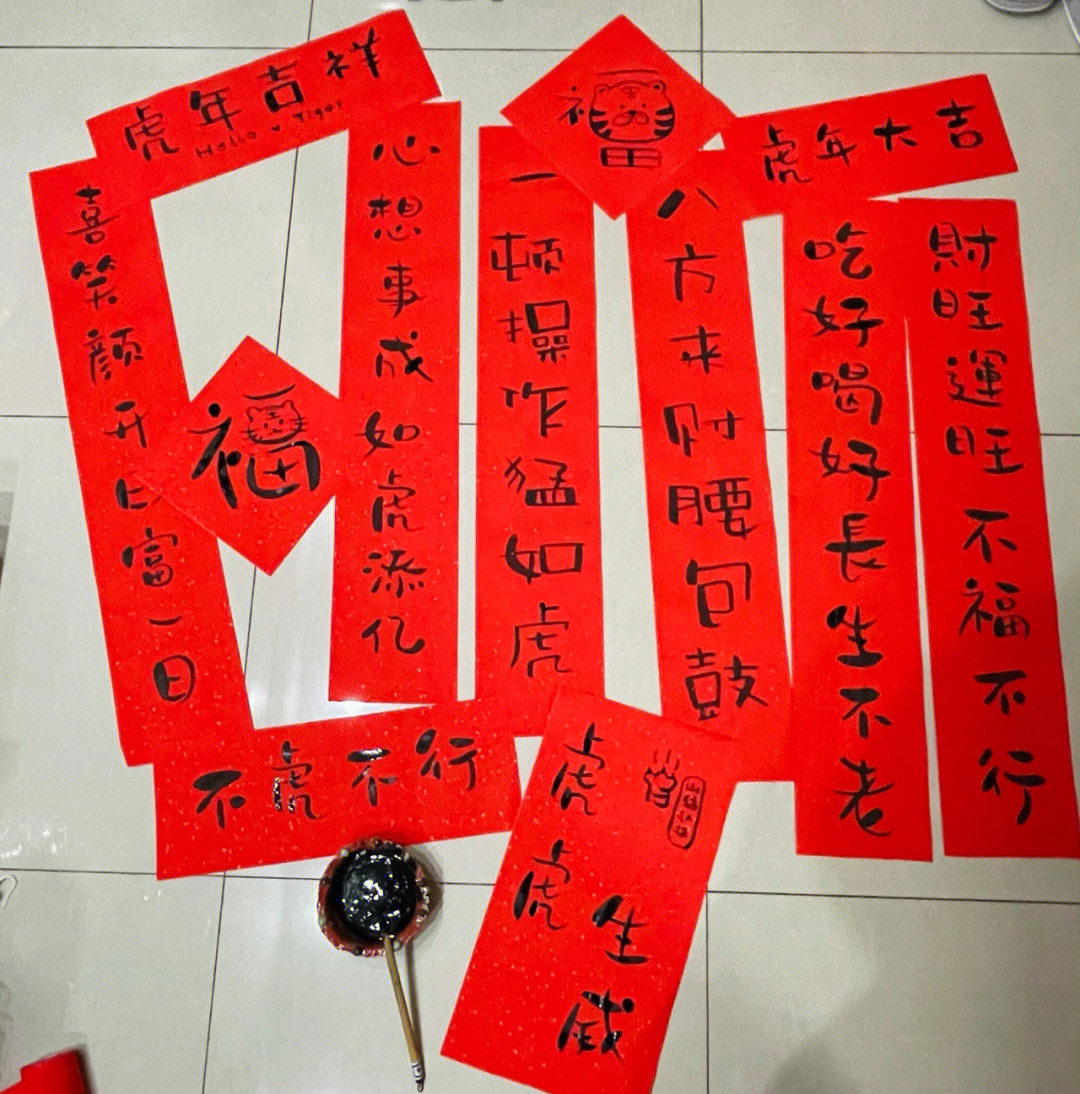 虎年吉祥
Hello ♥ Tiger
喜笑颜开日富一日
心想事成如虎添亿
福
福
一顿操咋猛如虎
八方来财腰包鼓
虎年大吉
吃好喝好長生不老
財旺運旺不福不行
不虎不行
虎虎生威